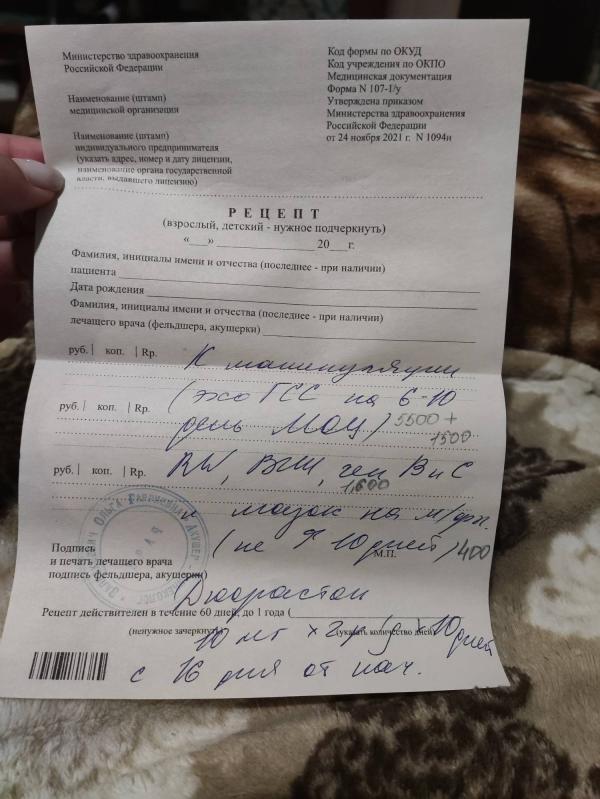 Министерство здравоохранения
Российской Федерации
Наименование (штамп)
медицинской организации
Наименование (штамп)
индивидуального предпринимателя
(указать адрес, номер и дату лицензии,
наименование органа государственной
власти, выдавшего лицензию)
Код формы по ОКУД
Код учреждения по ОКПО
Медицинская документация
Форма N 107-1/у
Утверждена приказом
Министерства здравоохранения
Российской Федерации
от 24 ноября 2021 г. N 1094н
РЕЦЕПТ
(взрослый, детский - нужное подчеркнуть)
«___» ______________ 20___г.
Фамилия, инициалы имени и отчества (последнее - при наличии)
пациента
Дата рождения
Фамилия, инициалы имени и отчества (последнее - при наличии)
лечащего врача (фельдшера, акушерки)
руб.| коп. | Rp. К манипуляции
(эхо ГСС на 6-10
руб.| коп. | Rp. день МОЦ) 5500 +
1500
руб.| коп. | Rp. RW, ВИЧ, геп В и С
1,600
и мазок на м/фл.
(не 10 дней) 400
Подпись
и печать лечащего врача
подпись фельдшера, акушерки)
М.П.
Ольга Акушер
Дюфастон
Рецепт действителен в течение 60 дней, до 1 года (
(ненужное зачеркнуть) (указать количество дней)
10 мг × 2 р/д × 10 дней
с 16 дня от нач.